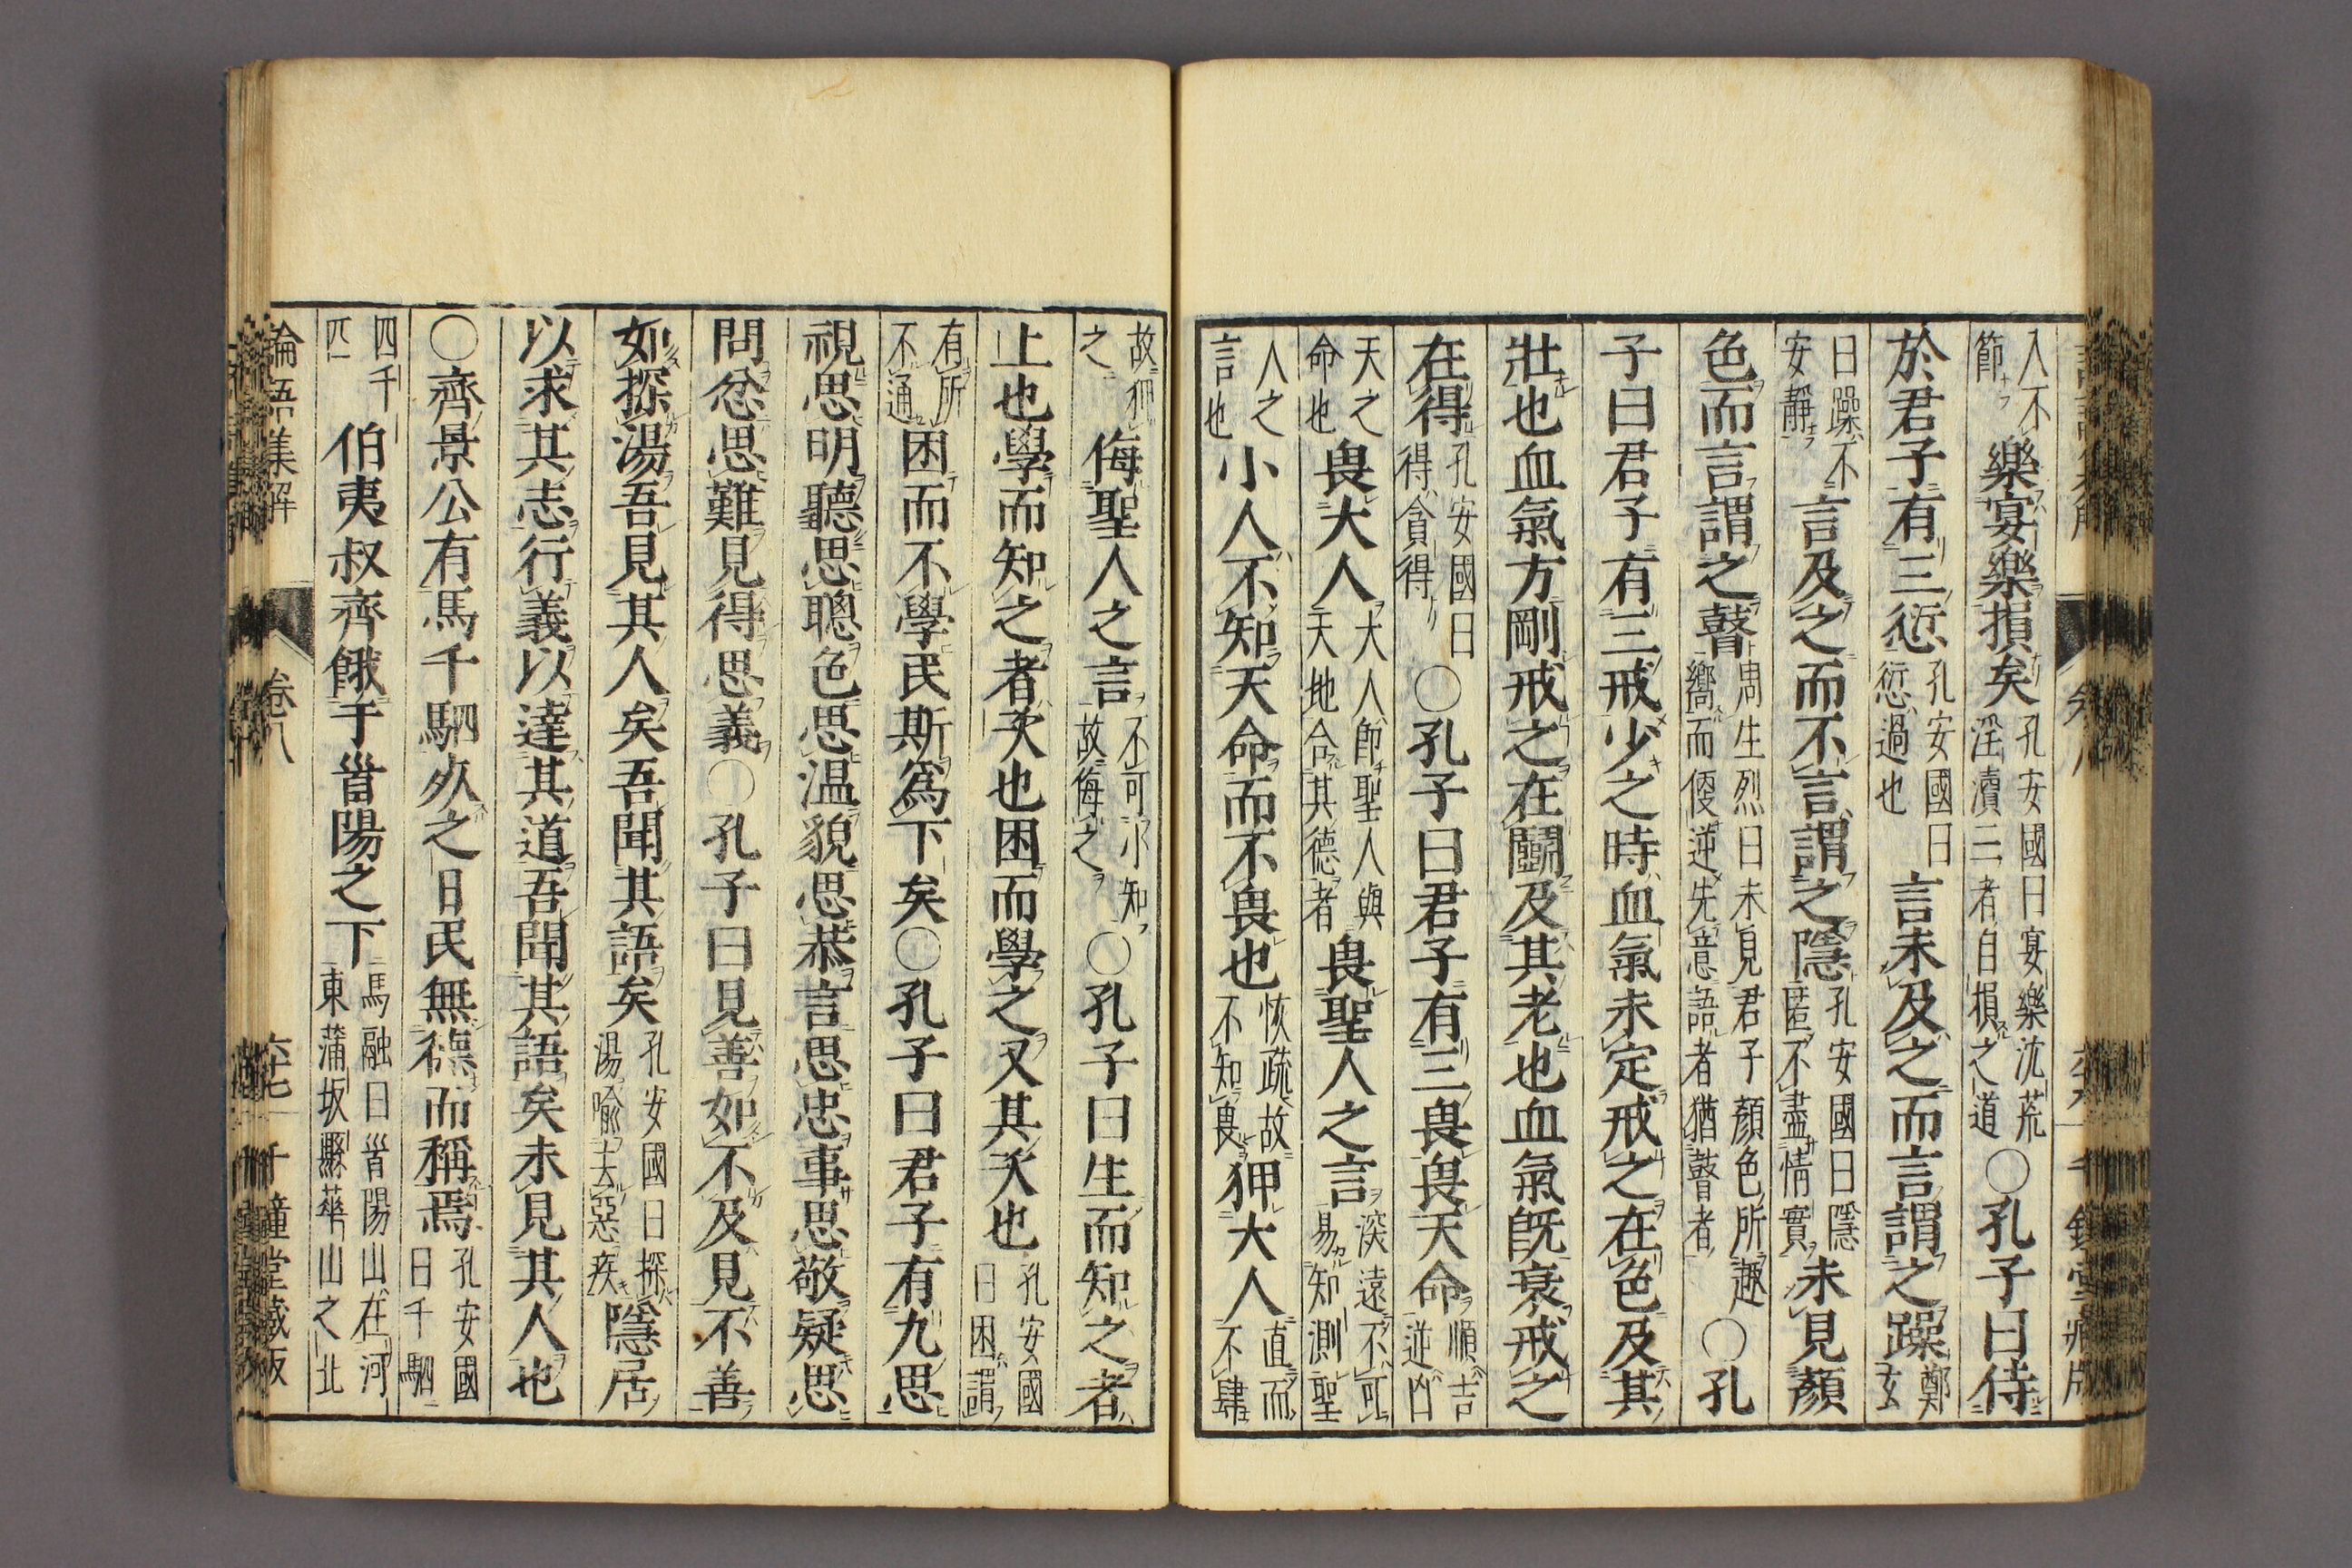 入不節樂宴樂損矣孔安國曰宴樂沈荒淫瀆三者自損之道〇孔子曰侍
於君子有三愆孔安國曰愆過也言未及之而言謂之躁鄭玄
曰躁不安靜言及之而不言謂之隱孔安國曰隱匿不盡情實未見顏
色而言謂之瞽周生烈曰未見君子顏色所趣嚮而便逆先意語者猶瞽者〇孔
子曰君子有三戒少之時血氣未定戒之在色及其
壯也血氣方剛戒之在鬭及其老也血氣既衰戒之
在得孔安國曰得貪得〇孔子曰君子有三畏畏天命順吉逆凶
天之命也畏大人大人即聖人與天地合其德者畏聖人之言深遠不可易知測聖
人之言也小人不知天命而不畏也恢疏故不知畏狎大人直而不肆
故狎之侮聖人之言不可小知故侮之〇孔子曰生而知之者
上也學而知之者次也困而學之又其次也孔安國曰困謂
有所不通困而不學民斯爲下矣〇孔子曰君子有九思
視思明聽思聰色思温貌思恭言思忠事思敬疑思
問忿思難見得思義〇孔子曰見善如不及見不善
如探湯吾見其人矣吾聞其語矣孔安國曰探湯喻去惡疾隱居
以求其志行義以達其道吾聞其語矣未見其人也
〇齊景公有馬千駟死之日民無德而稱焉孔安國曰千駟
四千匹伯夷叔齊餓于首陽之下馬融曰首陽山在河東蒲坂縣華山之北
論語集解 卷八 千鍾堂藏版